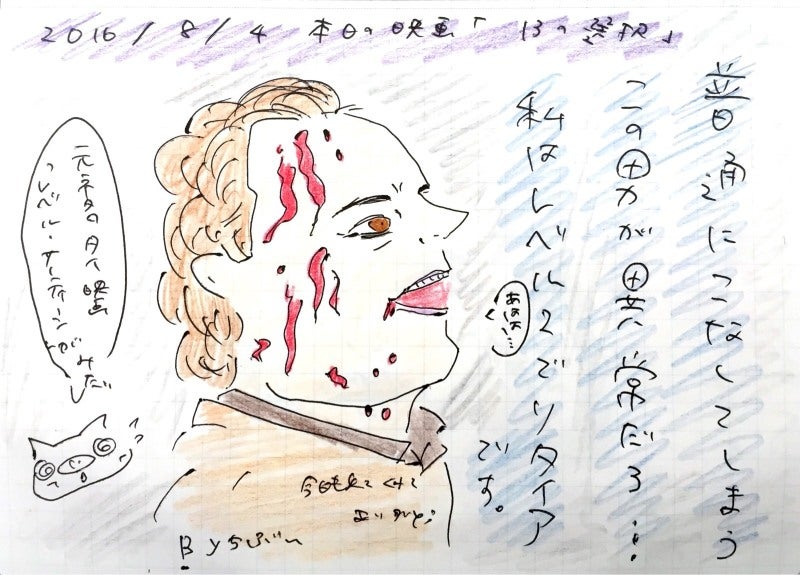 2016/8/4 本日の映画「13の選択」
普通にこなしてしまう
この男が異常だろ…
私はレベル2でリタイア
です。
元ネタのタイ映画
「レベル・サーティーン」がみたい
今日も来てくれて
ありがとう
By